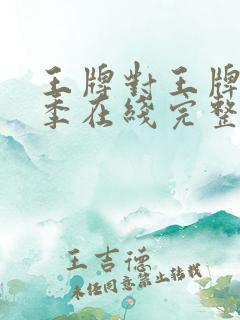 王牌對王牌
季在綫完整
王吉德
未经同意禁止转载